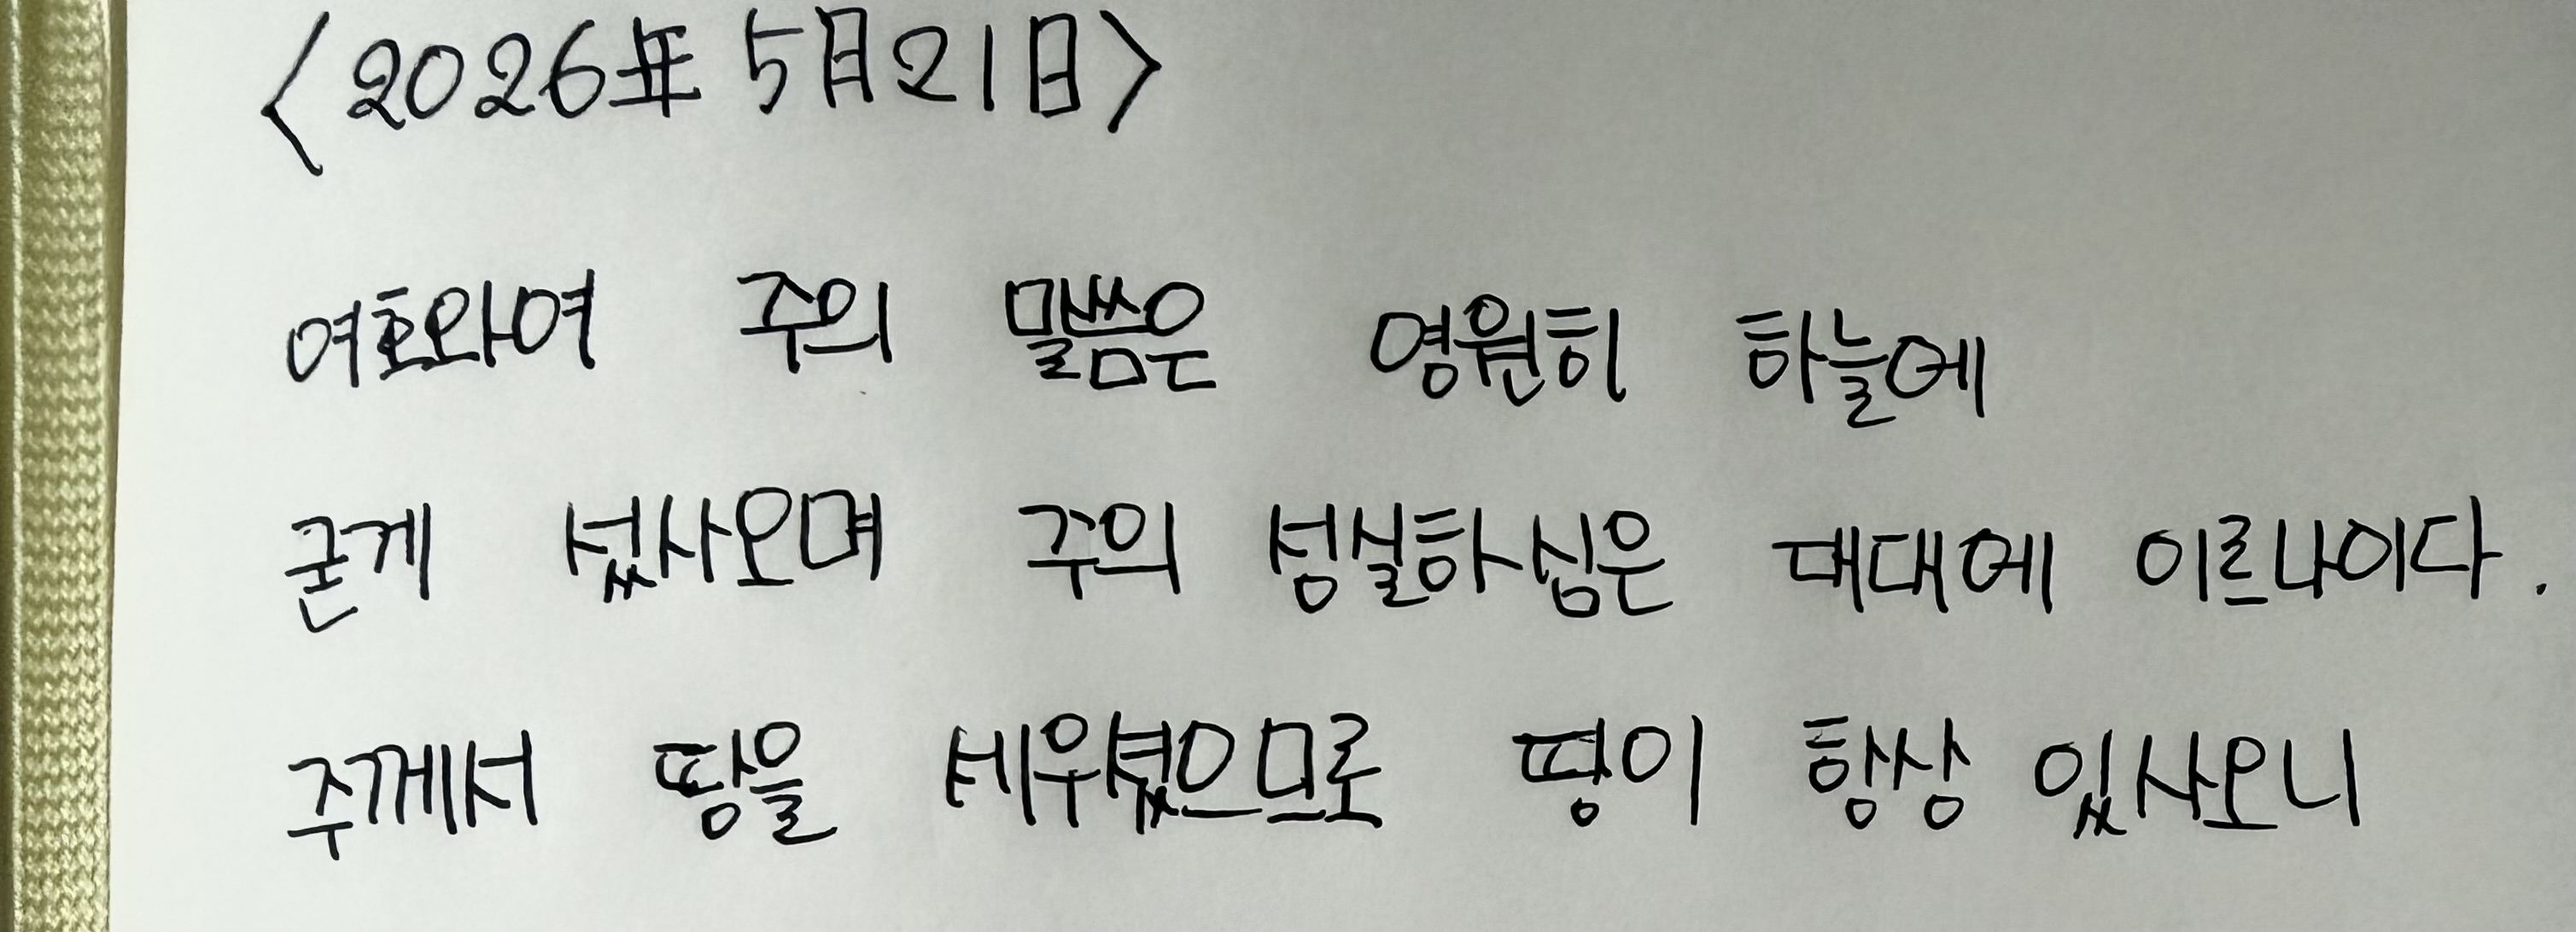 <2026年 5月21日>
여호와여 주의 말씀은 영원히 하늘에
굳게 섰사오며 주의 성실하심은 대대에 이르나이다.
주께서 땅을 세우셨으므로 땅이 항상 있사오니